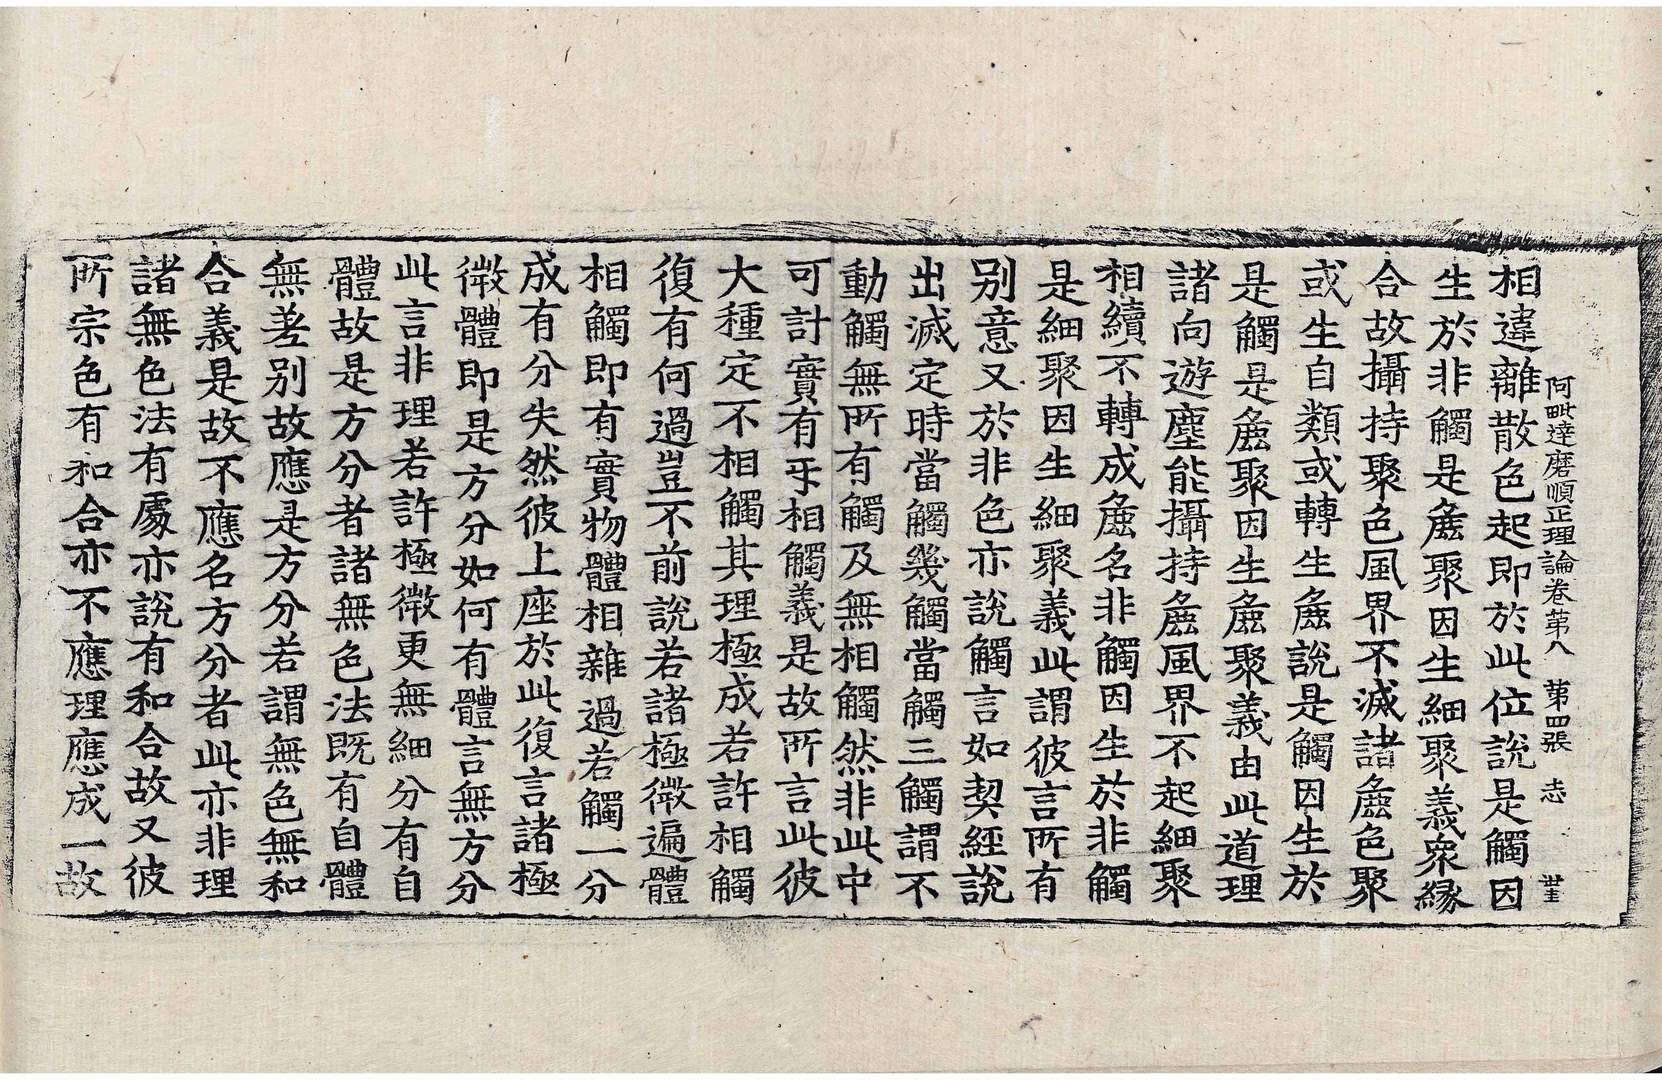 阿毗達磨順正理論卷第八 第四張 志
相違離散色起即於此位說是觸因
生於非觸是麁聚因生細聚義衆緣
合故攝持聚色風界不滅諸麁色聚
或生自類或轉生麁說是觸因生於
是觸是麁聚因生麁聚義由此道理
諸向遊塵能攝持麁風界不起細聚
相續不轉成麁名非觸因生於非觸
是細聚因生細聚義此謂彼言所有
别意又於非色亦說觸言如契經說
出滅定時當觸幾觸當觸三觸謂不
動觸無所有觸及無相觸然非此中
可計實有乎相觸義是故所言此彼
大種定不相觸其理極成若許相觸
復有何過豈不前說若諸極微遍體
相觸即有實物體相雜過若觸一分
成有分失然彼上座於此復言諸極
微體即是方分如何有體言無方分
此言非理若許極微更無細分有自
體故是方分者諸無色法既有自體
無差别故應是方分若謂無色無和
合義是故不應名方分者此亦非理
諸無色法有處亦說有和合故又彼
所宗色有和合亦不應理應成一故